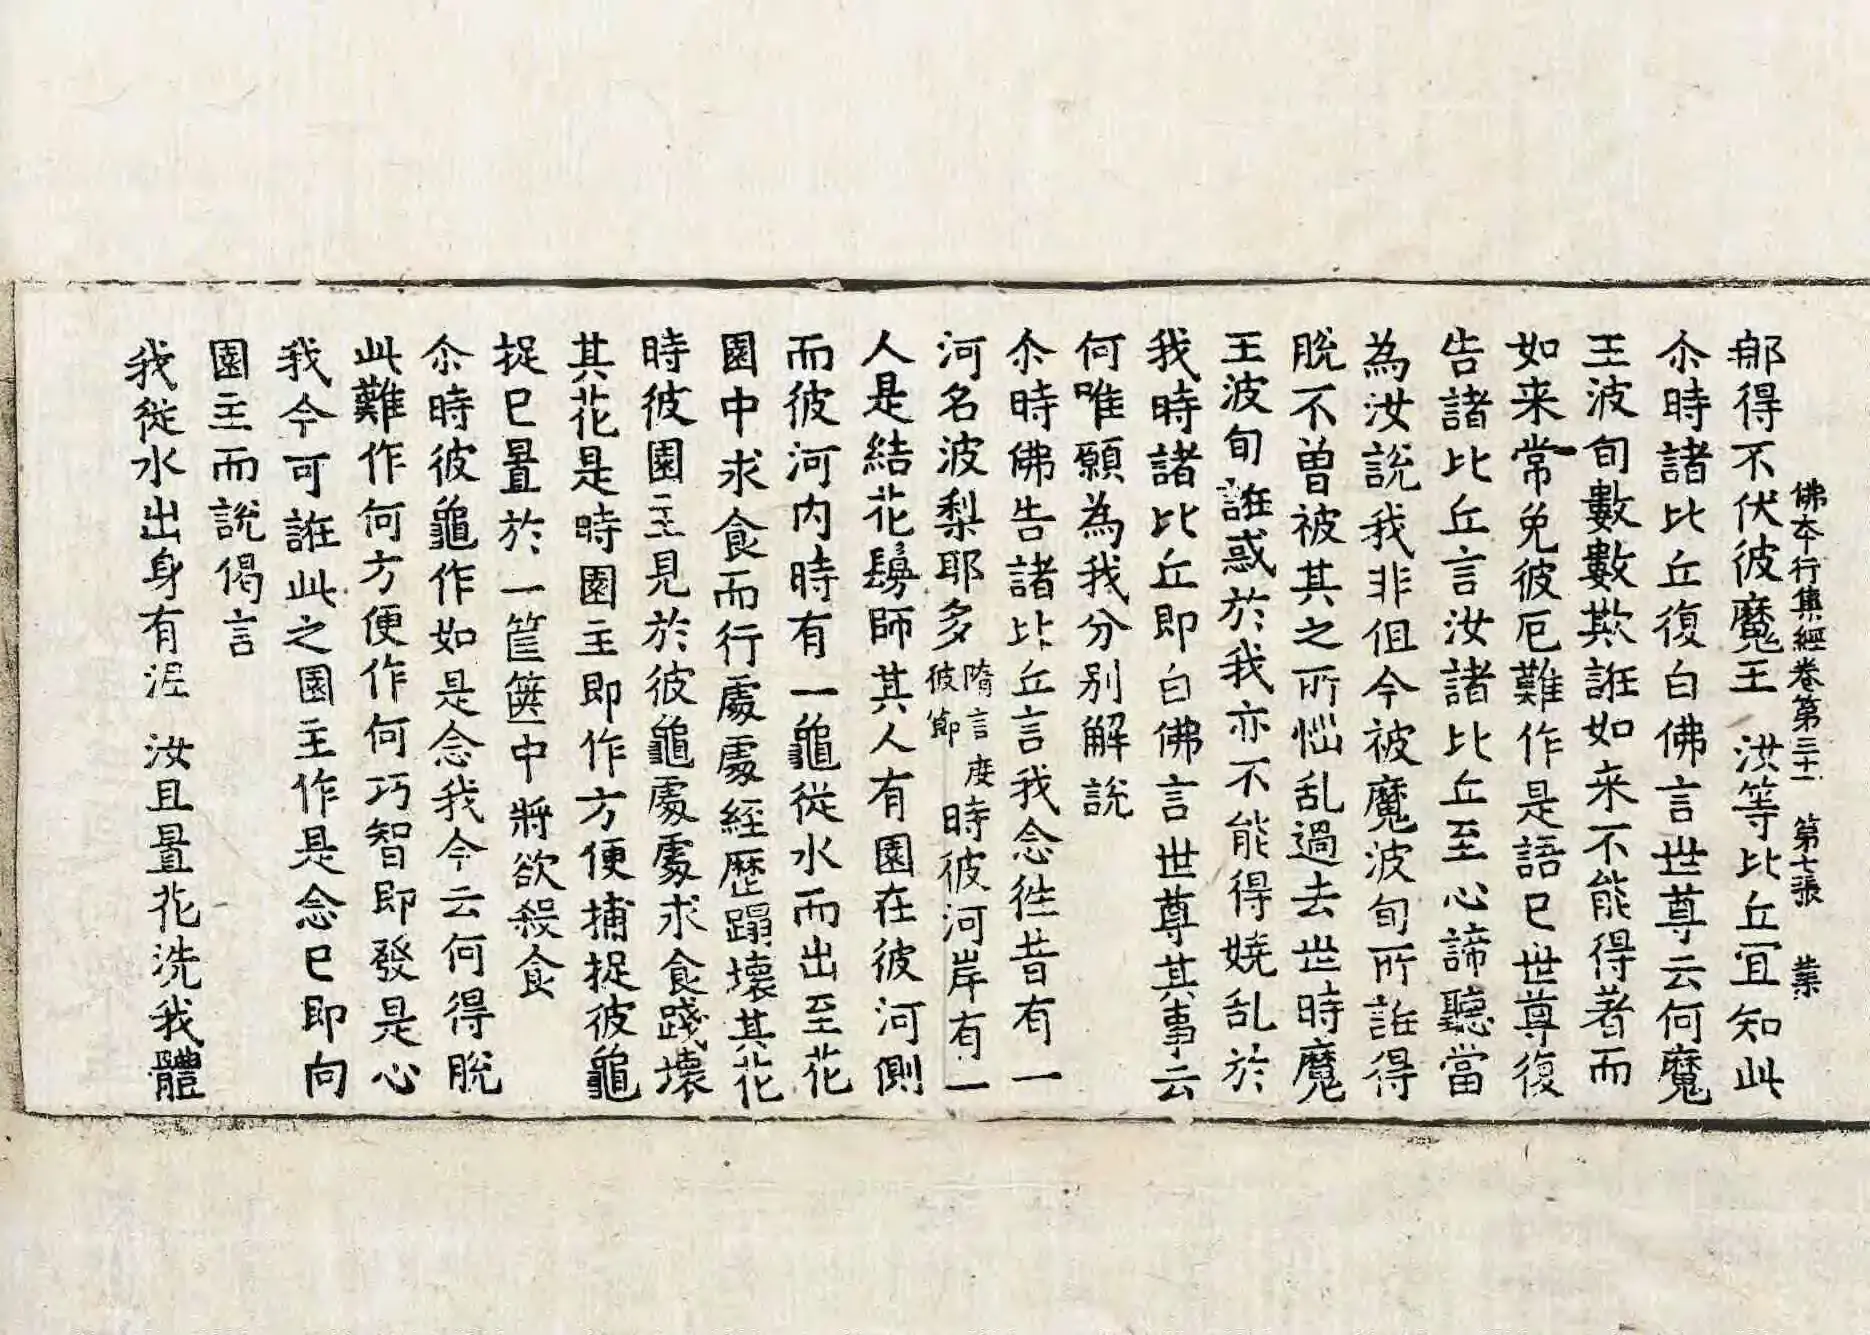 佛本行集經卷第三十一　第七張　業
那得不伏彼魔王　汝等比丘冝知此
尒時諸比丘復白佛言世尊云何魔
王波旬數數欺誑如来不能得著而
如来常免彼厄難作是語已世尊復
告諸比丘言汝諸比丘至心諦聽當
為汝説我非但今被魔波旬所誑得
脱不曽被其之所惱乱過去世時魔
王波旬誑惑於我亦不能得嬈乱於
我時諸比丘即白佛言世尊其事云
何唯願為我分別解説
尒時佛告諸比丘言我念徃昔有一
河名波梨耶多隋言度彼節時彼河岸有一
人是結花鬘師其人有園在彼河側
而彼河内時有一龜從水而出至花
園中求食而行處處經歷蹋壞其花
時彼園主見於彼龜處處求食踐壞
其花是時園主即作方便捕捉彼龜
捉已置於一筐篋中將欲殺食
尒時彼龜作如是念我今云何得脱
此難作何方便作何巧智即發是心
我今可誑此之園主作是念已即向
園主而説偈言
我從水出身有泥　汝且置花洗我體